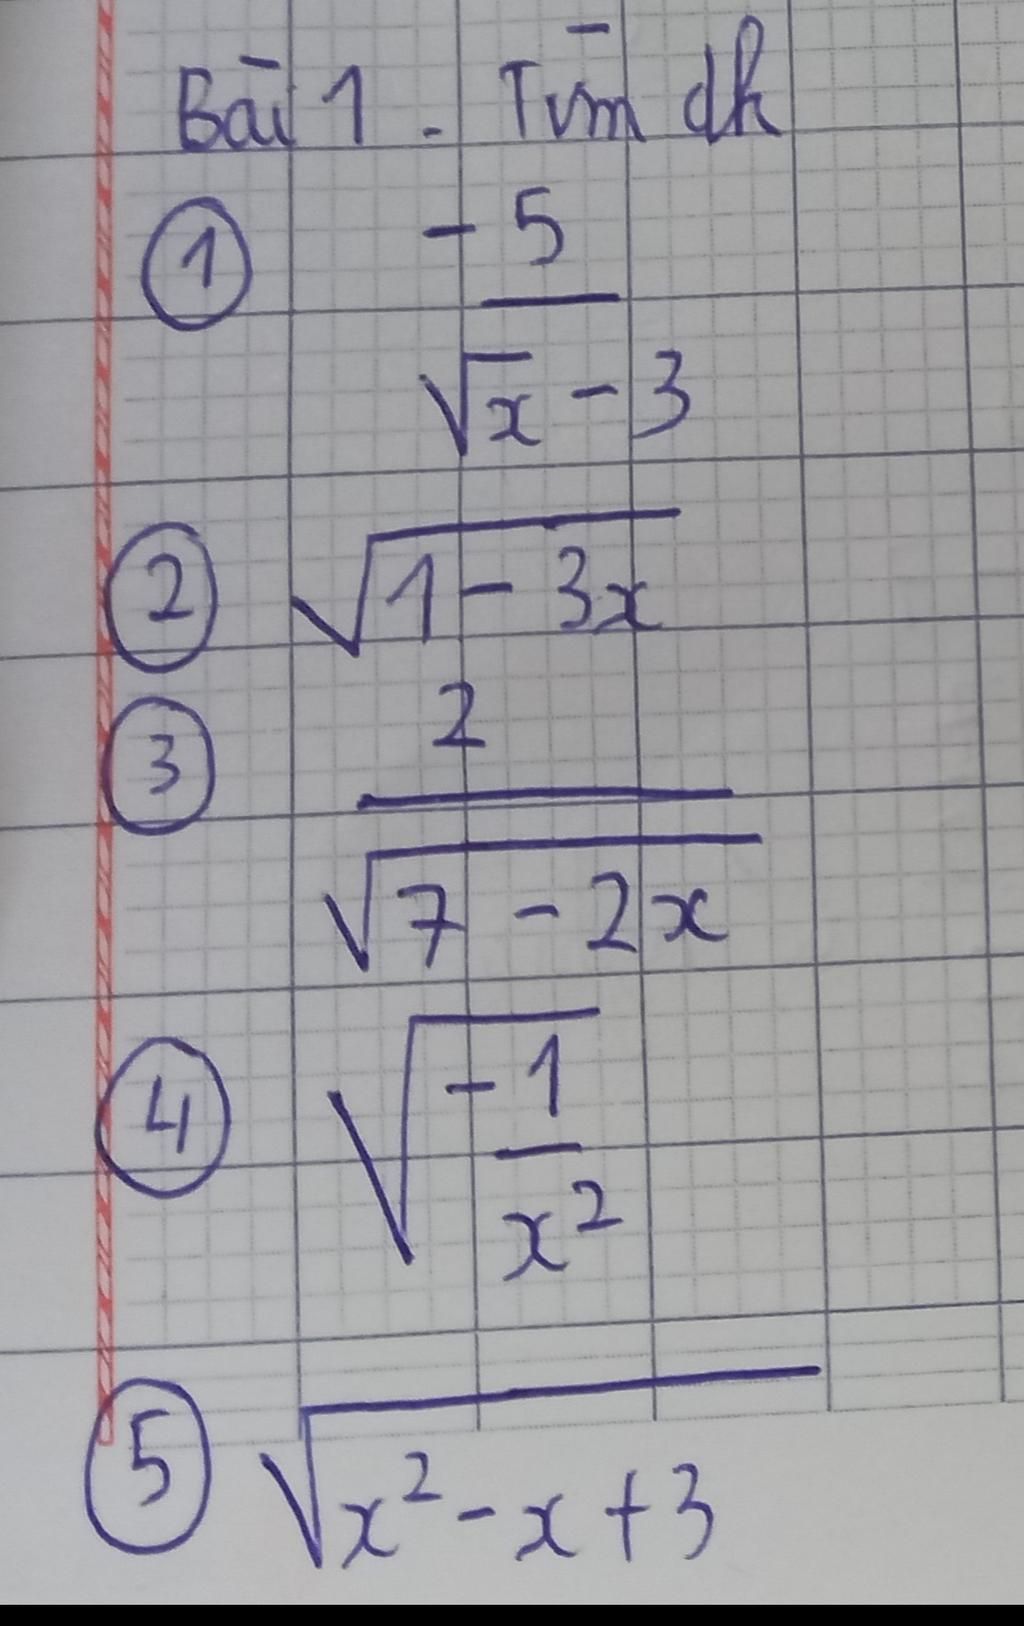 Bài 1. Tìm đk
① -5/(√x - 3)
② √(1 - 3x)
③ 2/√(7 - 2x)
④ √(-1/x²)
⑤ √(x² - x + 3)